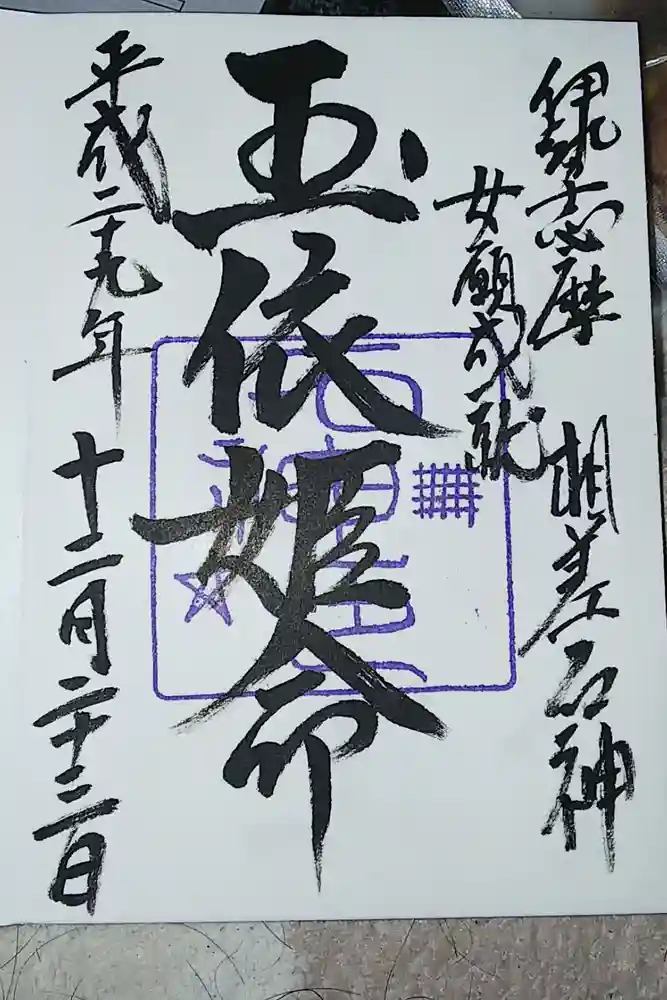 志摩 相差石神
女願成就
玉依姫命
平成二十九年 十二月二十三日